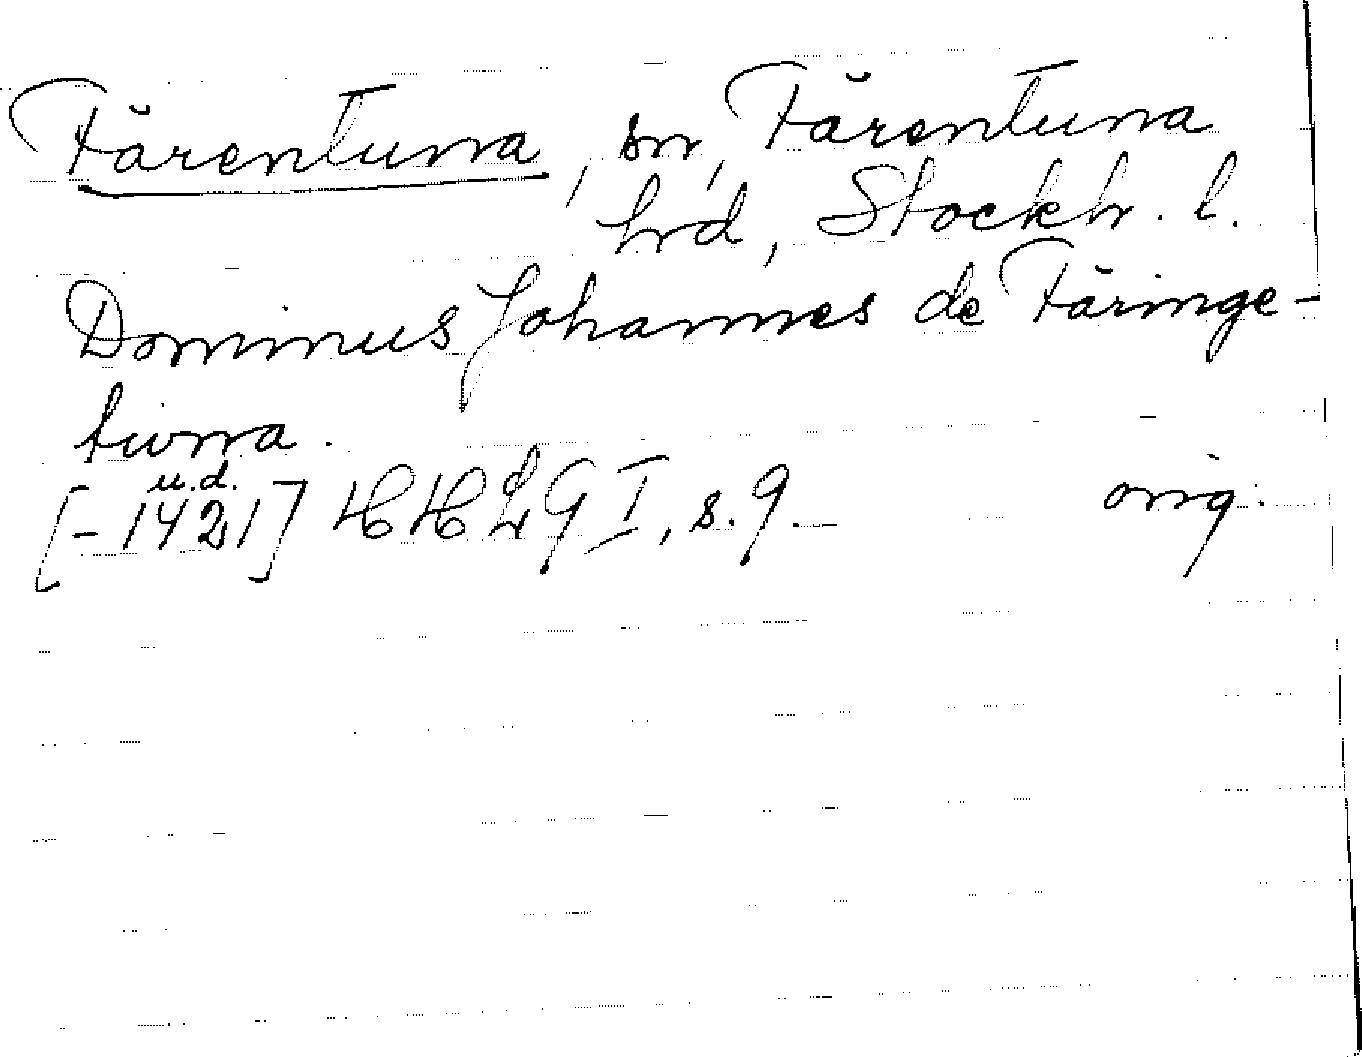 Färentuna, sn, Färentuna
hrd, Stockh. l.
Dominus Johannes de Färinge-
tuna.
u.d.
[-1421] HHLG I, s. 9. orig.